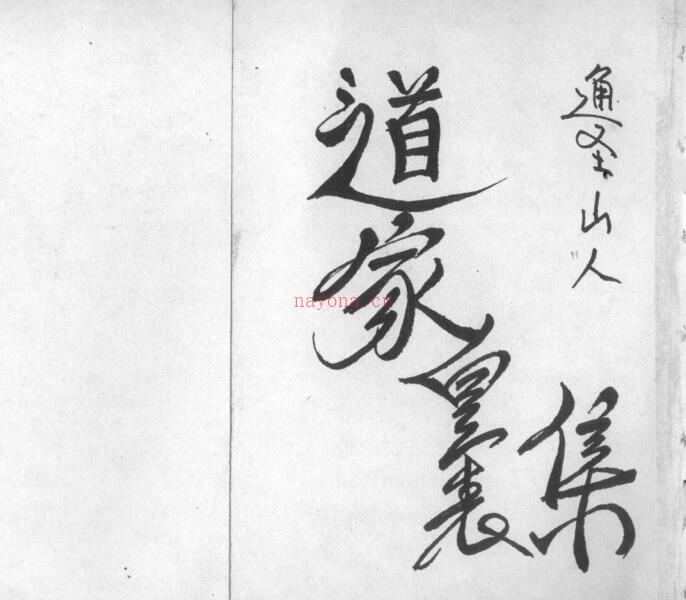 通圣山人
道家集
nayona.cn